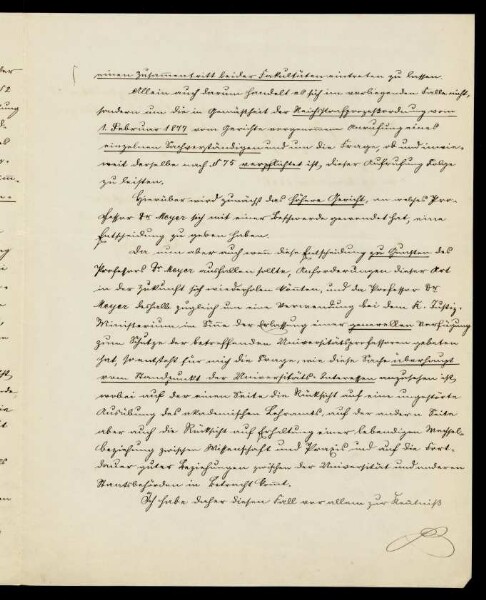 einen Zusammentritt beider Fakultäten eintreten zu lassen.
Allein auch darum handelt es sich im vorliegenden Falle nicht,
sondern um die in Gemäßheit der Reichsstrafprozeßordnung vom
1. Februar 1877 vom Gerichte vorgenommene Anrufung eines
einzelnen Sachverständigen und um die Frage, ob und inwie-
weit derselbe nach § 75 verpflichtet ist, dieser Aufrufung Folge
zu leisten.
Hierüber wird zunächst das höhere Gericht, an welches Pro-
fessor Dr Meyer sich mit einer Beschwerde gewendet hat, eine
Entscheidung zu geben haben.
Da nun aber auch wenn diese Entscheidung zu Gunsten des
Professors Dr Meyer ausfallen sollte, Anforderungen dieser Art
in der Zukunft sich wiederholen könnten, und da Professor Dr
Meyer deshalb zugleich um eine Verwendung bei dem K. Justiz-
Ministerium im Sinne der Erlassung einer generellen Verfügung
zum Schutze der betreffenden Universitätsprofessoren gebeten
hat, so entsteht für mich die Frage, wie diese Sache überhaupt
vom Standpunkt der Universitäts-Interessen anzusehen ist,
wobei auf der einen Seite die Rücksicht auf eine ungestörte
Ausübung des akademischen Lehramts, auf der andern Seite
aber auch die Rücksicht auf Erhaltung einer lebendigen Wechsel-
beziehung zwischen Wissenschaft und Praxis und auf die Fort-
dauer guter Beziehungen zwischen der Universität und anderen
Staatsbehörden in Betracht kommt.
Ich habe daher diesen Fall vor allem zur Kenntniß